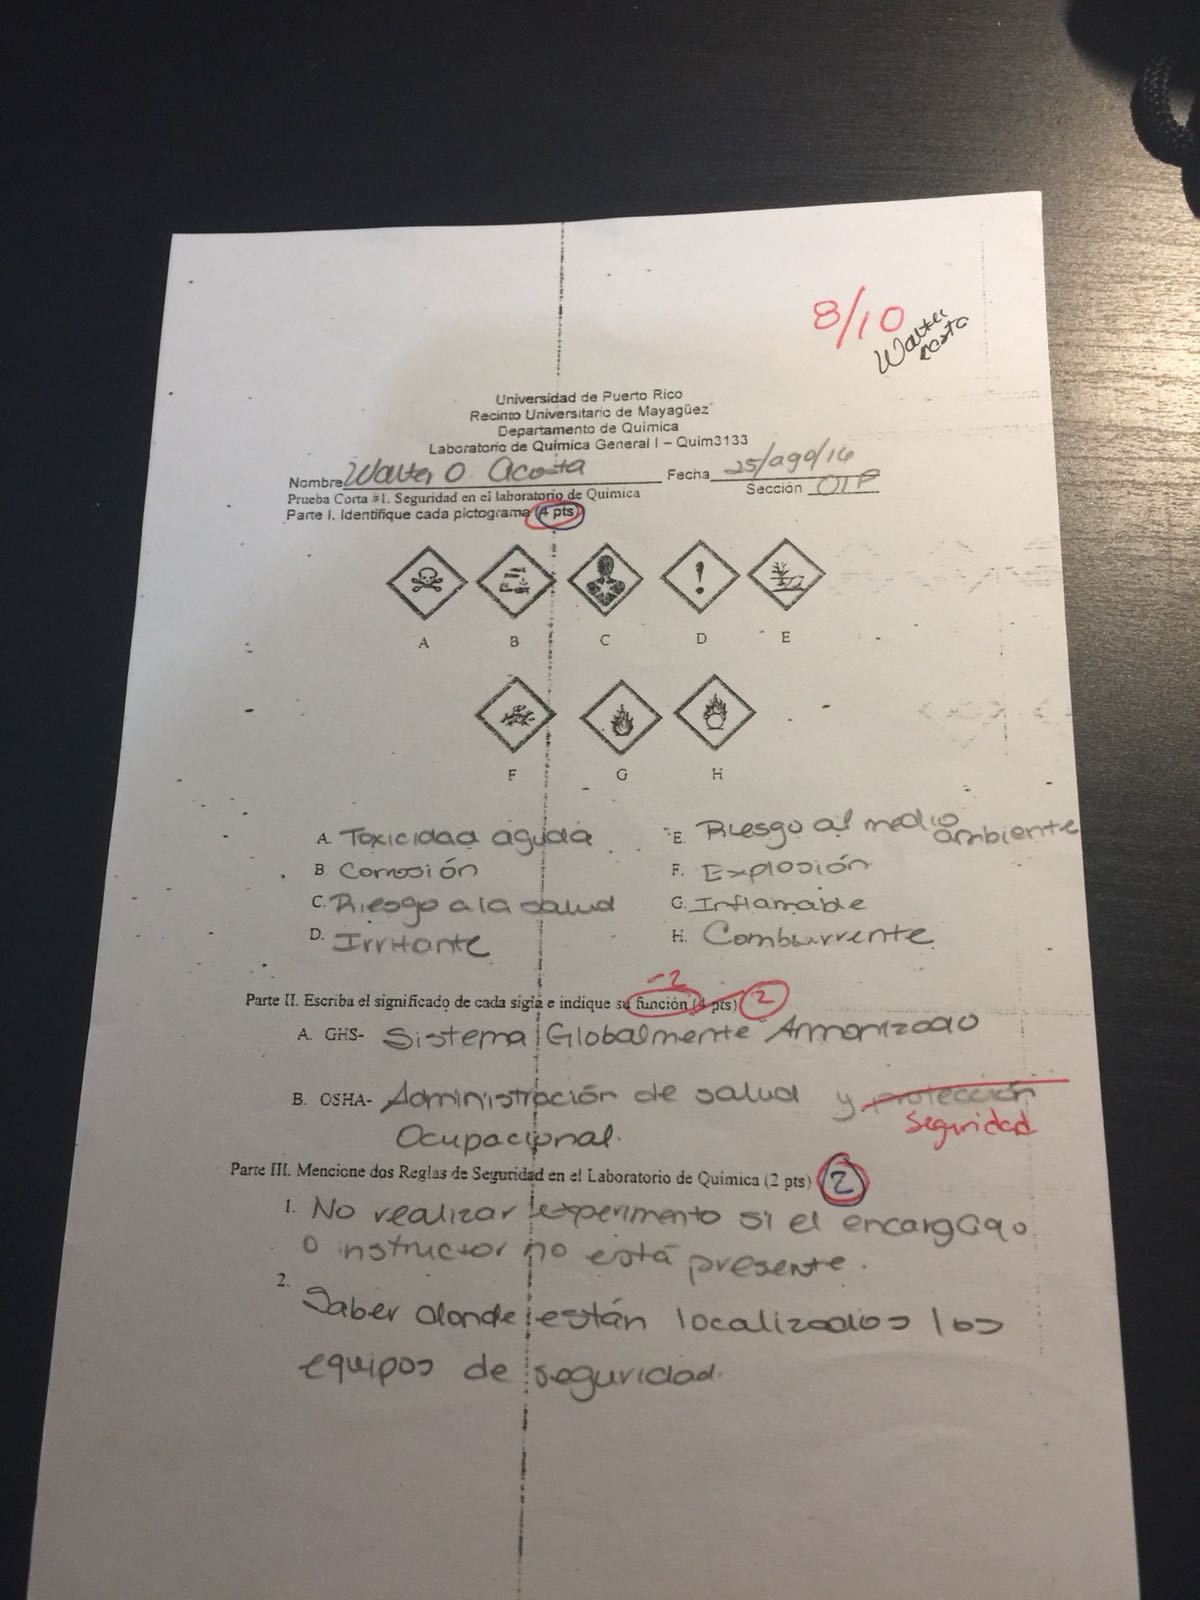 8/10
Walter
acosta
Universidad de Puerto Rico
Recinto Universitario de Mayagüez
Departamento de Química
Laboratorio de Química General I – Quim3133
Nombre Walter O. Acosta Fecha 25/ago/16
Prueba Corta #1. Seguridad en el laboratorio de Química Sección
Parte I. Identifique cada pictograma (4 pts)
A B C D E
F G H
A. Toxicidad aguda E. Riesgo al medio ambiente
B Corrosión F. Explosión
C. Riesgo a la salud G. Inflamable
D. Irritante H. Comburrente
-2
Parte II. Escriba el significado de cada sigla e indique su función (4 pts) 2
A. GHS- Sistema Globalmente Armonizado
B. OSHA- Administración de salud y protección
Seguridad
Ocupacional.
Parte III. Mencione dos Reglas de Seguridad en el Laboratorio de Química (2 pts) 2
1. No realizar experimento si el encargado
o instructor no está presente.
2. Saber donde están localizados los
equipos de seguridad.